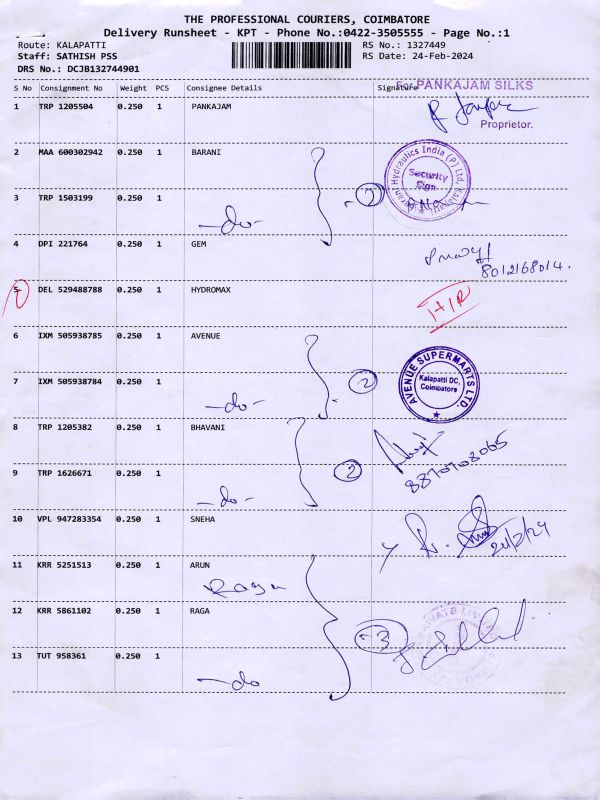 THE PROFESSIONAL COURIERS, COIMBATORE
Delivery Runsheet - KPT - Phone No.:0422-3505555 - Page No.:1
Route: KALAPATTI RS No.: 1327449
Staff: SATHISH PSS RS Date: 24-Feb-2024
DRS No.: DCJB132744901
S No Consignment No Weight PCS Consignee Details Signature
For PANKAJAM SILKS
1 TRP 1205504 0.250 1 PANKAJAM
Proprietor.
2 MAA 600302942 0.250 1 BARANI
Hydraulics India (P) Ltd, Security Sign
3 TRP 1503199 0.250 1 2
-do-
4 DPI 221764 0.250 1 GEM
8012168014.
5 DEL 529488788 0.250 1 HYDROMAX
6 IXM 505938785 0.250 1 AVENUE
AVENUE SUPERMARTS LTD. Kalapatti DC, Coimbatore
7 IXM 505938784 0.250 1 2
-do-
8 TRP 1205382 0.250 1 BHAVANI
8870708065
9 TRP 1626671 0.250 1 2
-do-
10 VPL 947283354 0.250 1 SNEHA
24/2/24
11 KRR 5251513 0.250 1 ARUN
Raga
12 KRR 5861102 0.250 1 RAGA
3
13 TUT 958361 0.250 1
-do